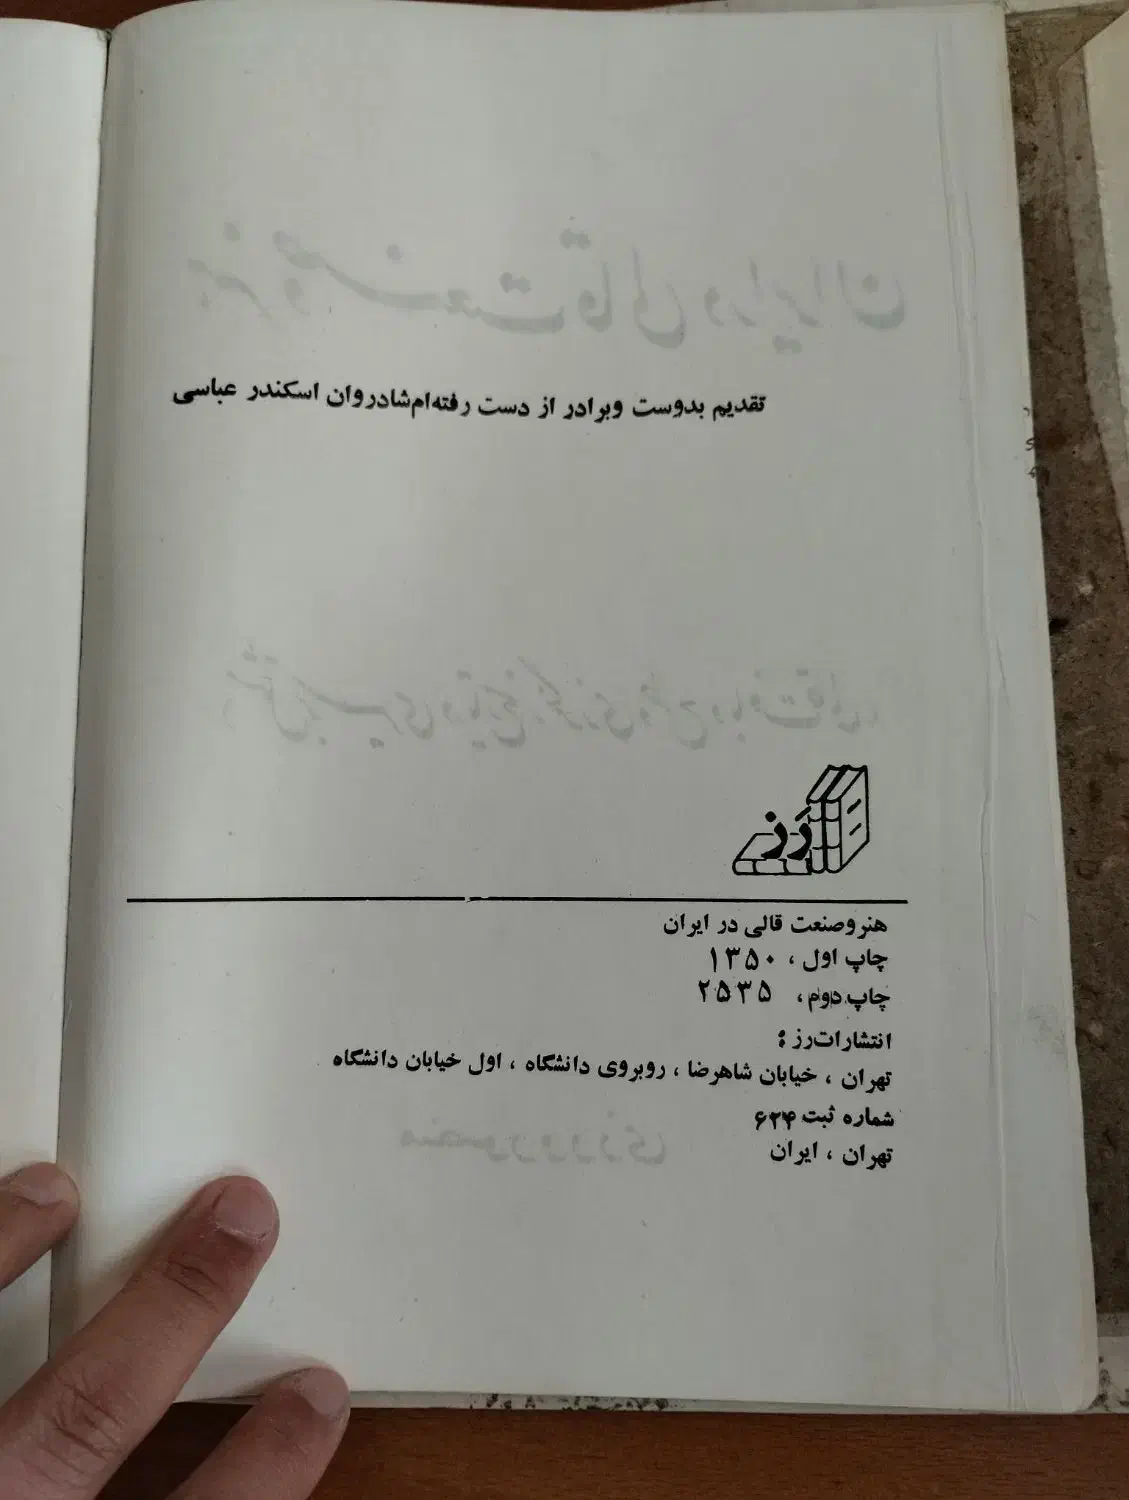 تقدیم بدوست وبرادر از دست رفته‌ام‌شادروان اسکندر عباسی
رَز
هنروصنعت قالی در ایران
چاپ اول، ۱۳۵۰
چاپ دوم، ۲۵۳۵
انتشارات‌رز:
تهران ، خیابان شاهرضا ، روبروی دانشگاه ، اول خیابان دانشگاه
شماره ثبت ۶۲۴
تهران ، ایران